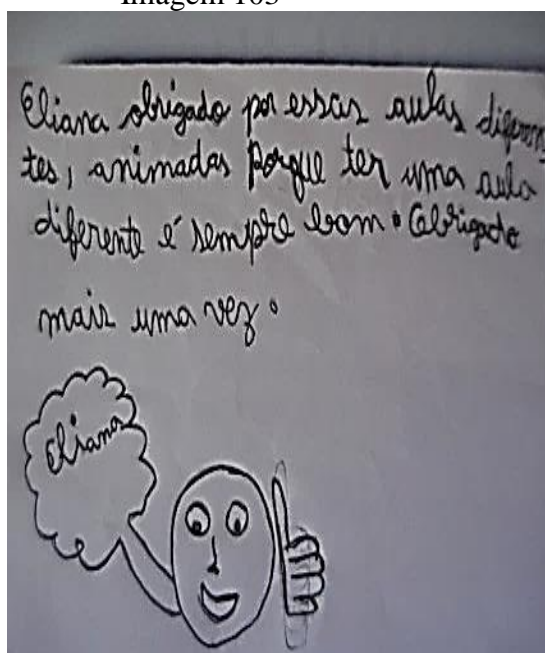 Imagem 103
Eliana obrigado por essas aulas diferen
tes, animadas porque ter uma aula
diferente é sempre bom. Obrigado
mais uma vez.
Eliana